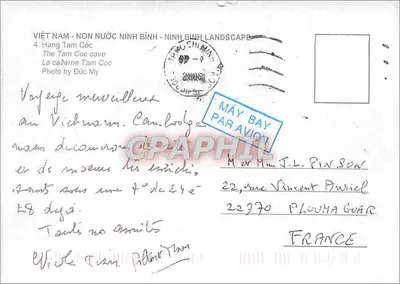 VIỆT NAM - NON NƯỚC NINH BÌNH - NINH BINH LANDSCAPE
4. Hang Tam Cốc
The Tam Coc cave
La caverne Tam Coc
Photo by Đức My
HO CHI MINH
MÁY BAY
PAR AVION
CPAPHIL
Voyage merveilleux
au Vietnam. Cambodge
nous découvrons
et de moeurs
sous une t° de 24 à
28 degrés.
Toutes nos amitiés
M. et Mme J.L. PINSON
22, rue Vincent Auriol
22970 PLOUMAGOAR
FRANCE